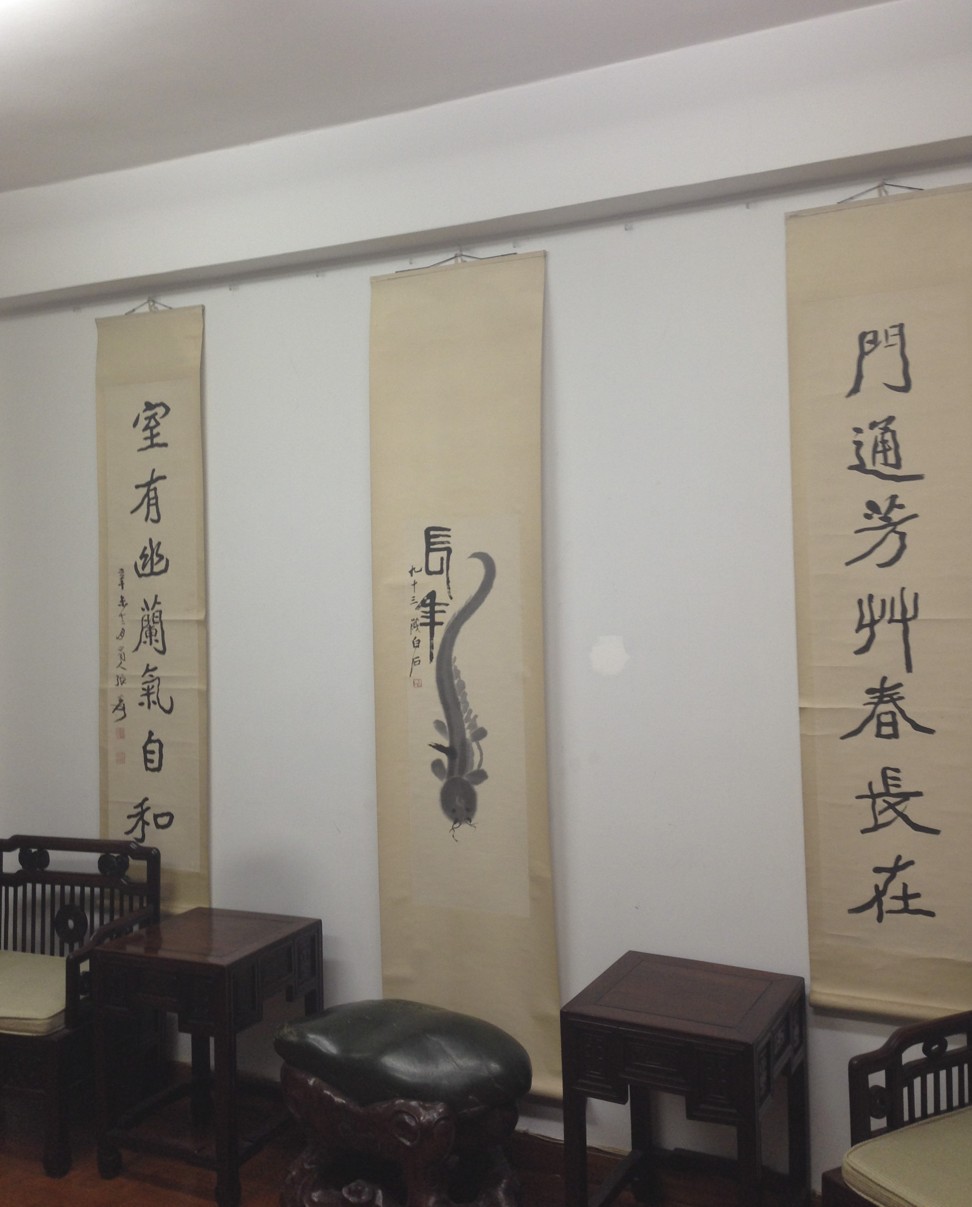 門通芳艸春長在
長年
九十三歲白石
室有幽蘭氣自和